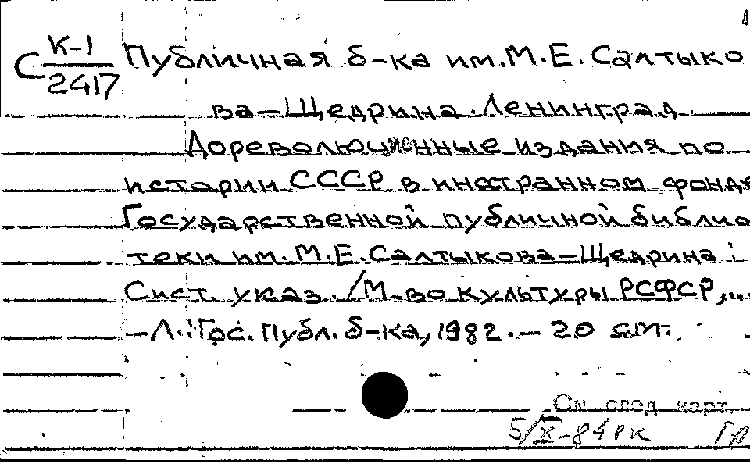 С К-1/2417 Публичная б-ка им. М.Е. Салтыко
ва-Щедрина. Ленинград.
Дореволюционные издания по
истории СССР в иностранном фонде
Государственной публичной библио
теки им. М.Е. Салтыкова-Щедрина :
Сист. указ. / М-во культуры РСФСР,...
-Л.: Гос. публ. б-ка, 1982. - 20 см.
См. след. карт.
5/X-84